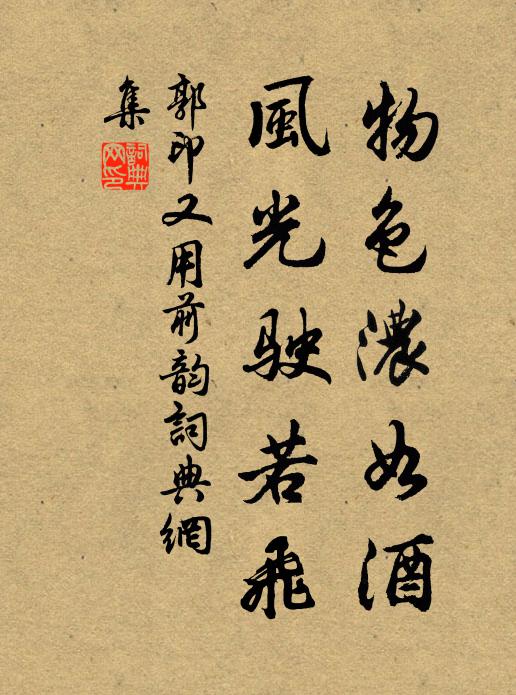 物色濃如酒
風光駛若飛
郭印又用前韵詞典網
集
詞典網印